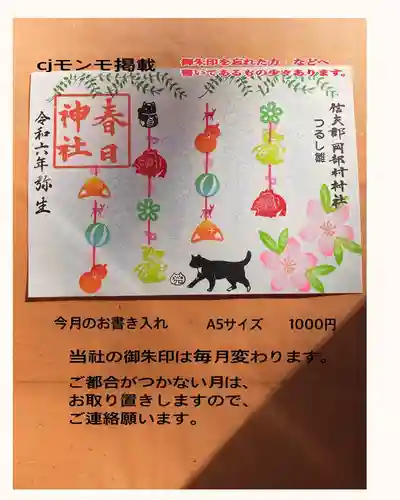 cjモンモ掲載
御朱印を忘れた方　などへ
書いてあるもの少々あります。
信夫郡岡部村村社
つるし雛
春日神社
令和六年弥生
今月のお書き入れ　A5サイズ　1000円
当社の御朱印は毎月変わります。
ご都合がつかない月は、
お取り置きしますので、
ご連絡願います。